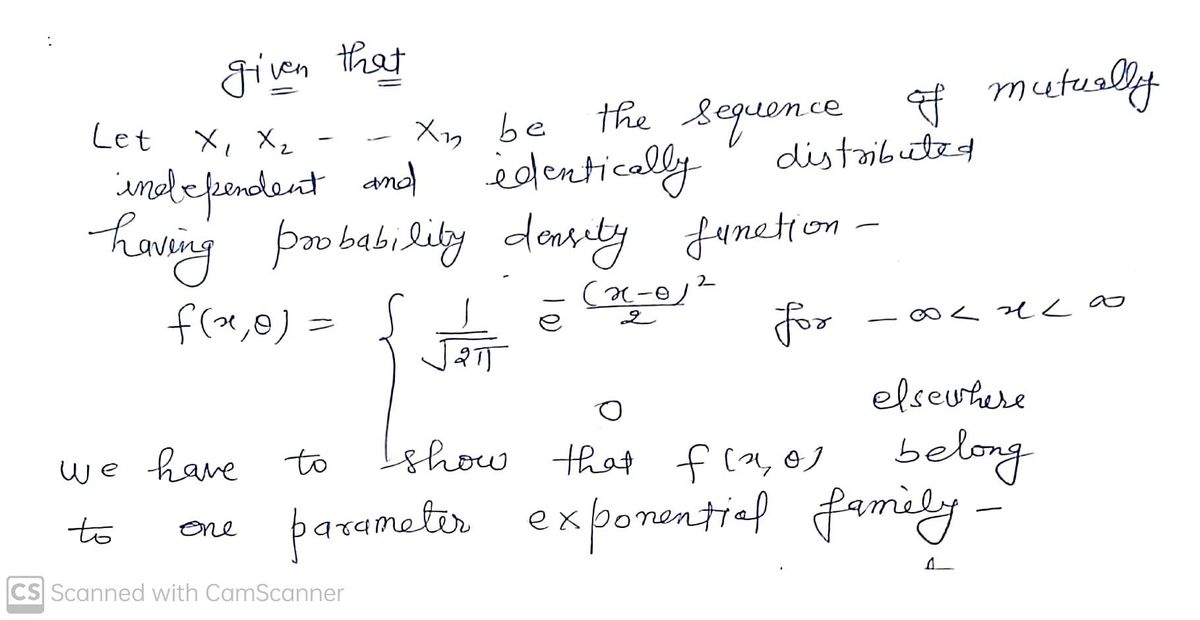 given that
Let X₁ X₂ - - Xₙ be the sequence of mutually
independent and identically distributed
having probability density function -
f(x,θ) = { 1/√2π e^-(x-θ)²/2 for -∞ < x < ∞
0 elsewhere
we have to show that f(x,θ) belong
to one parameter exponential family -
CS Scanned with CamScanner